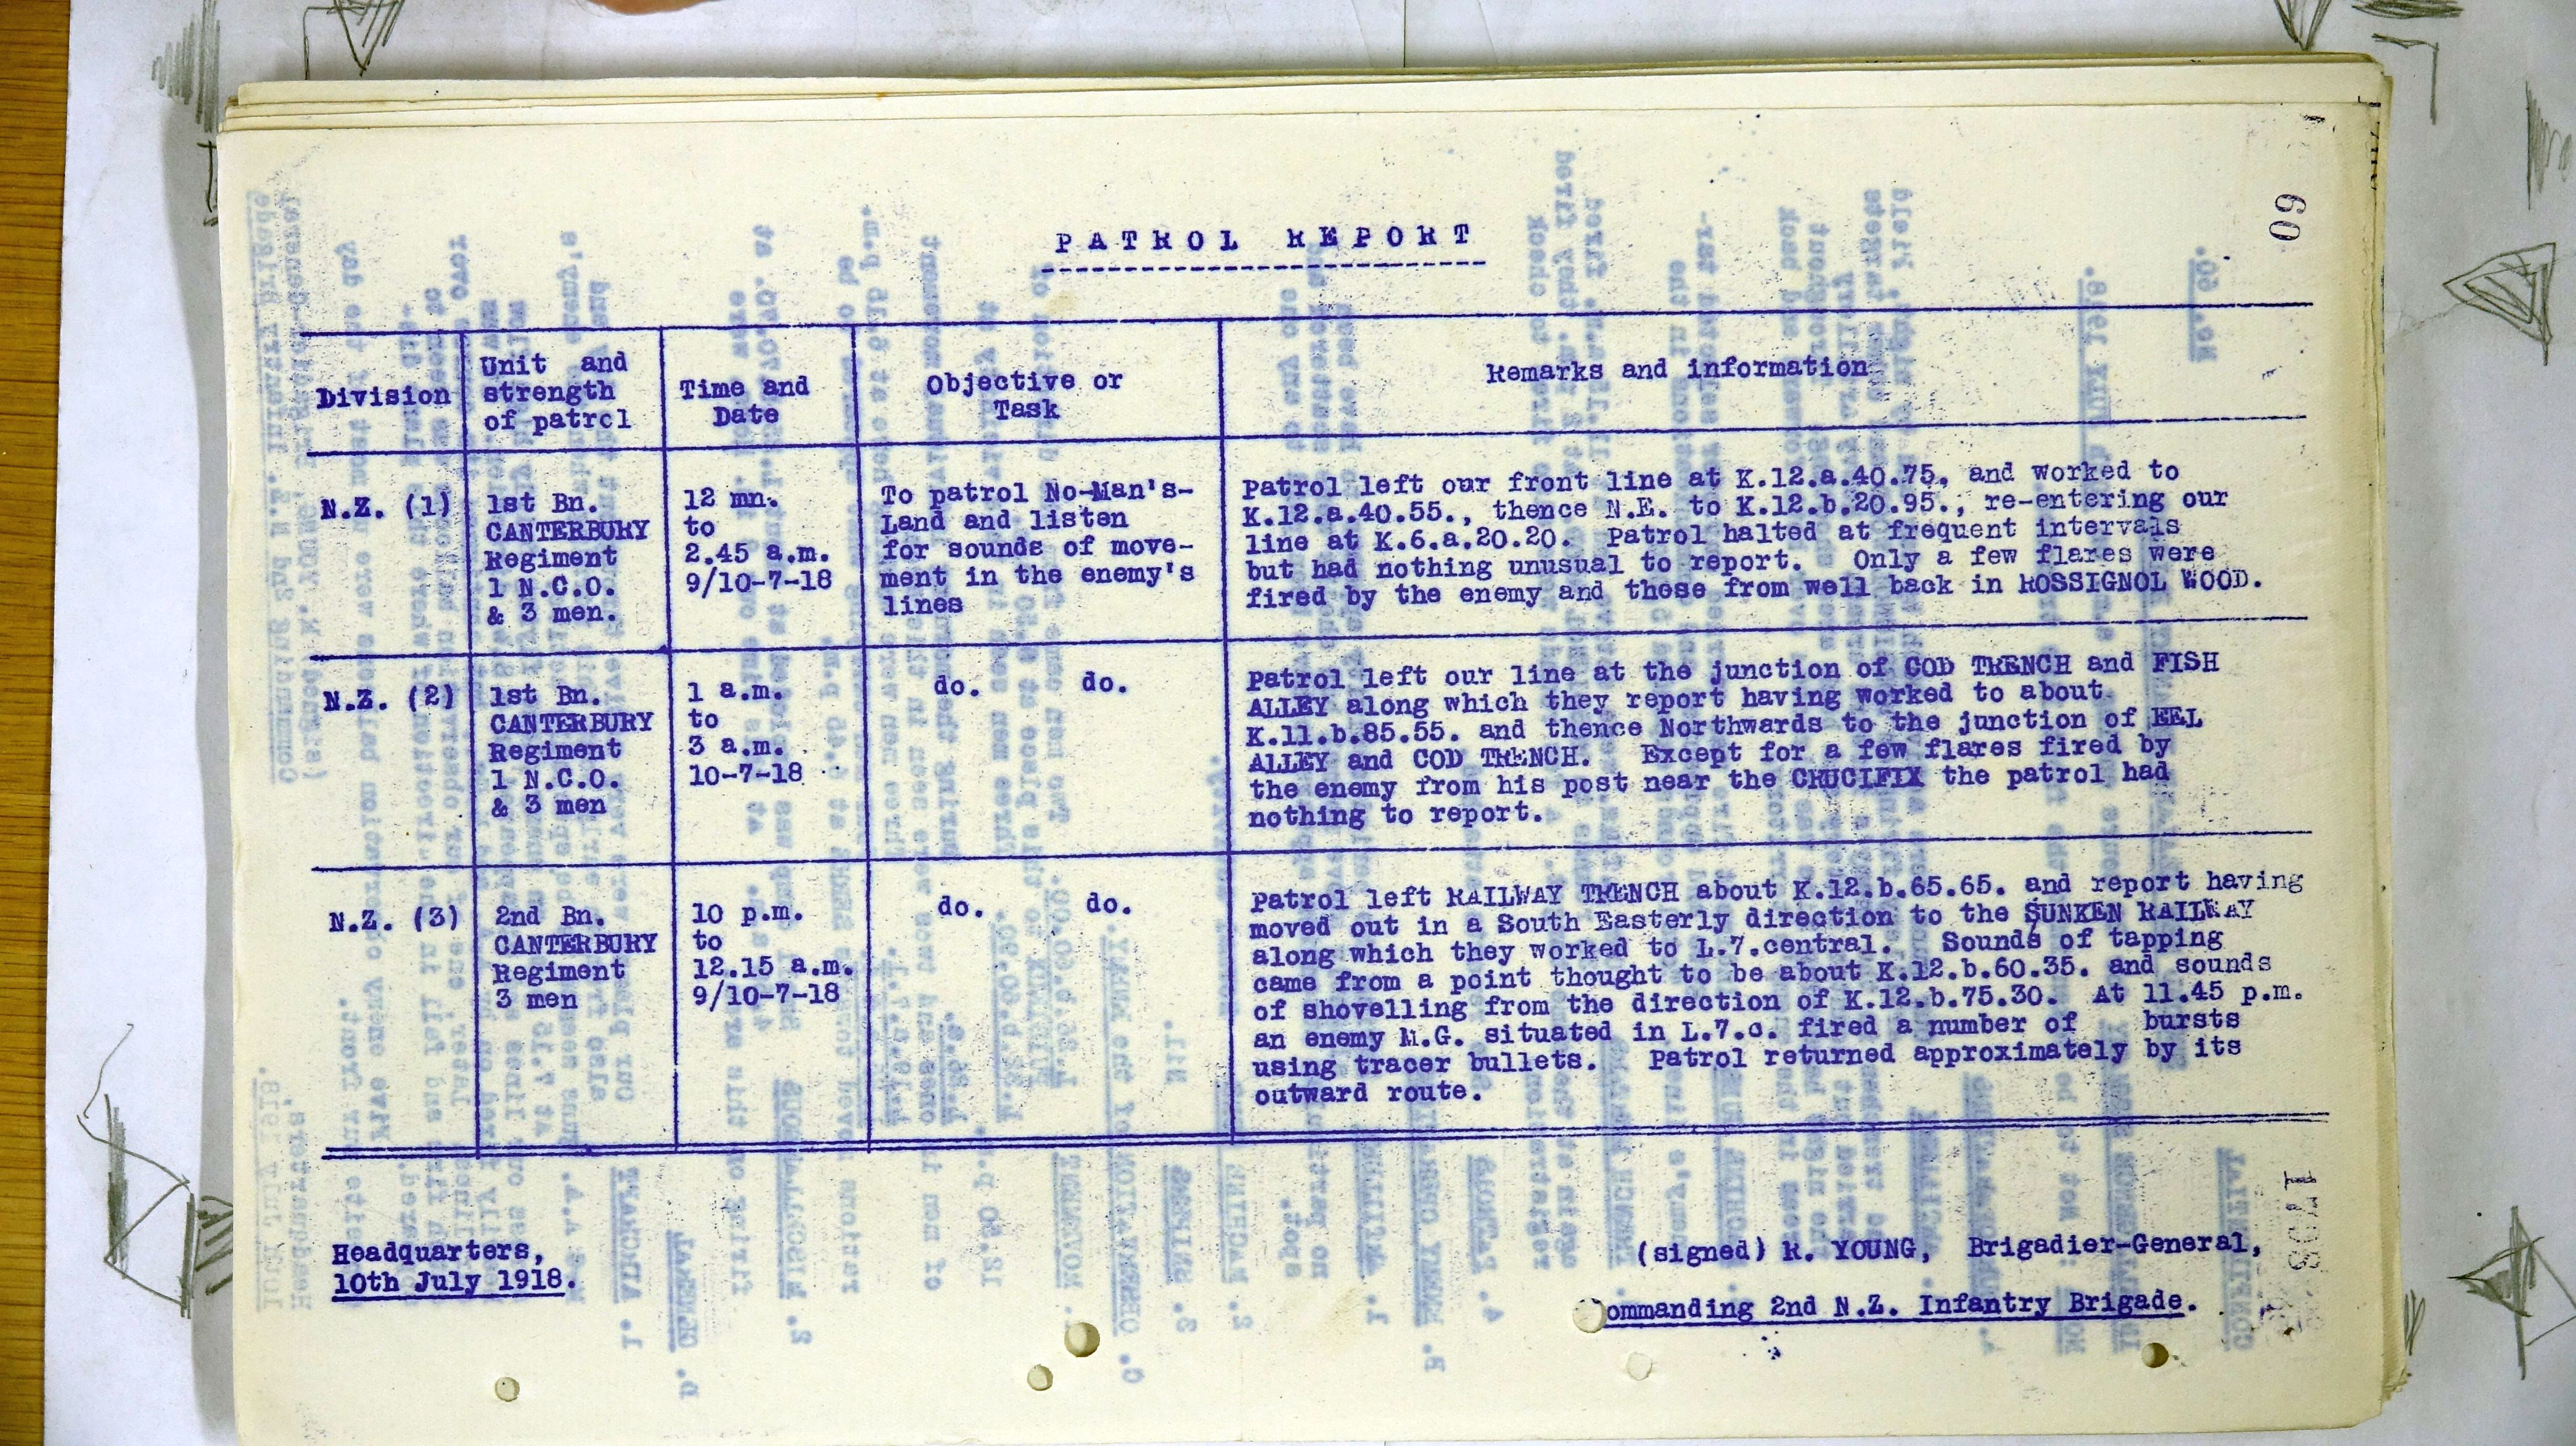 PATROL REPORT
Division
Unit and
strength
of patrol
Time and
Date
Objective or
Task
Remarks and information
N.Z. (1)
1st Bn.
CANTERBURY
Regiment
1 N.C.O.
& 3 men.
12 mn.
to
2.45 a.m.
9/10-7-18
To patrol No-Man's-
Land and listen
for sounds of move-
ment in the enemy's
lines
Patrol left our front line at K.12.a.40.75. and worked to
K.12.a.40.55., thence N.E. to K.12.b.20.95., re-entering our
line at K.6.a.20.20. Patrol halted at frequent intervals
but had nothing unusual to report. Only a few flares were
fired by the enemy and these from well back in ROSSIGNOL WOOD.
N.Z. (2)
1st Bn.
CANTERBURY
Regiment
1 N.C.O.
& 3 men
1 a.m.
to
3 a.m.
10-7-18
do. do.
Patrol left our line at the junction of COD TRENCH and FISH
ALLEY along which they report having worked to about
K.11.b.85.55. and thence Northwards to the junction of EEL
ALLEY and COD TRENCH. Except for a few flares fired by
the enemy from his post near the CRUCIFIX the patrol had
nothing to report.
N.Z. (3)
2nd Bn.
CANTERBURY
Regiment
3 men
10 p.m.
to
12.15 a.m.
9/10-7-18
do. do.
Patrol left RAILWAY TRENCH about K.12.b.65.65. and report having
moved out in a South Easterly direction to the SUNKEN RAILWAY
along which they worked to L.7.central. Sounds of tapping
came from a point thought to be about K.12.b.60.35. and sounds
of shovelling from the direction of K.12.b.75.30. At 11.45 p.m.
an enemy M.G. situated in L.7.c. fired a number of bursts
using tracer bullets. Patrol returned approximately by its
outward route.
Headquarters,
10th July 1918.
(signed) R. YOUNG, Brigadier-General,
ommanding 2nd N.Z. Infantry Brigade.
60